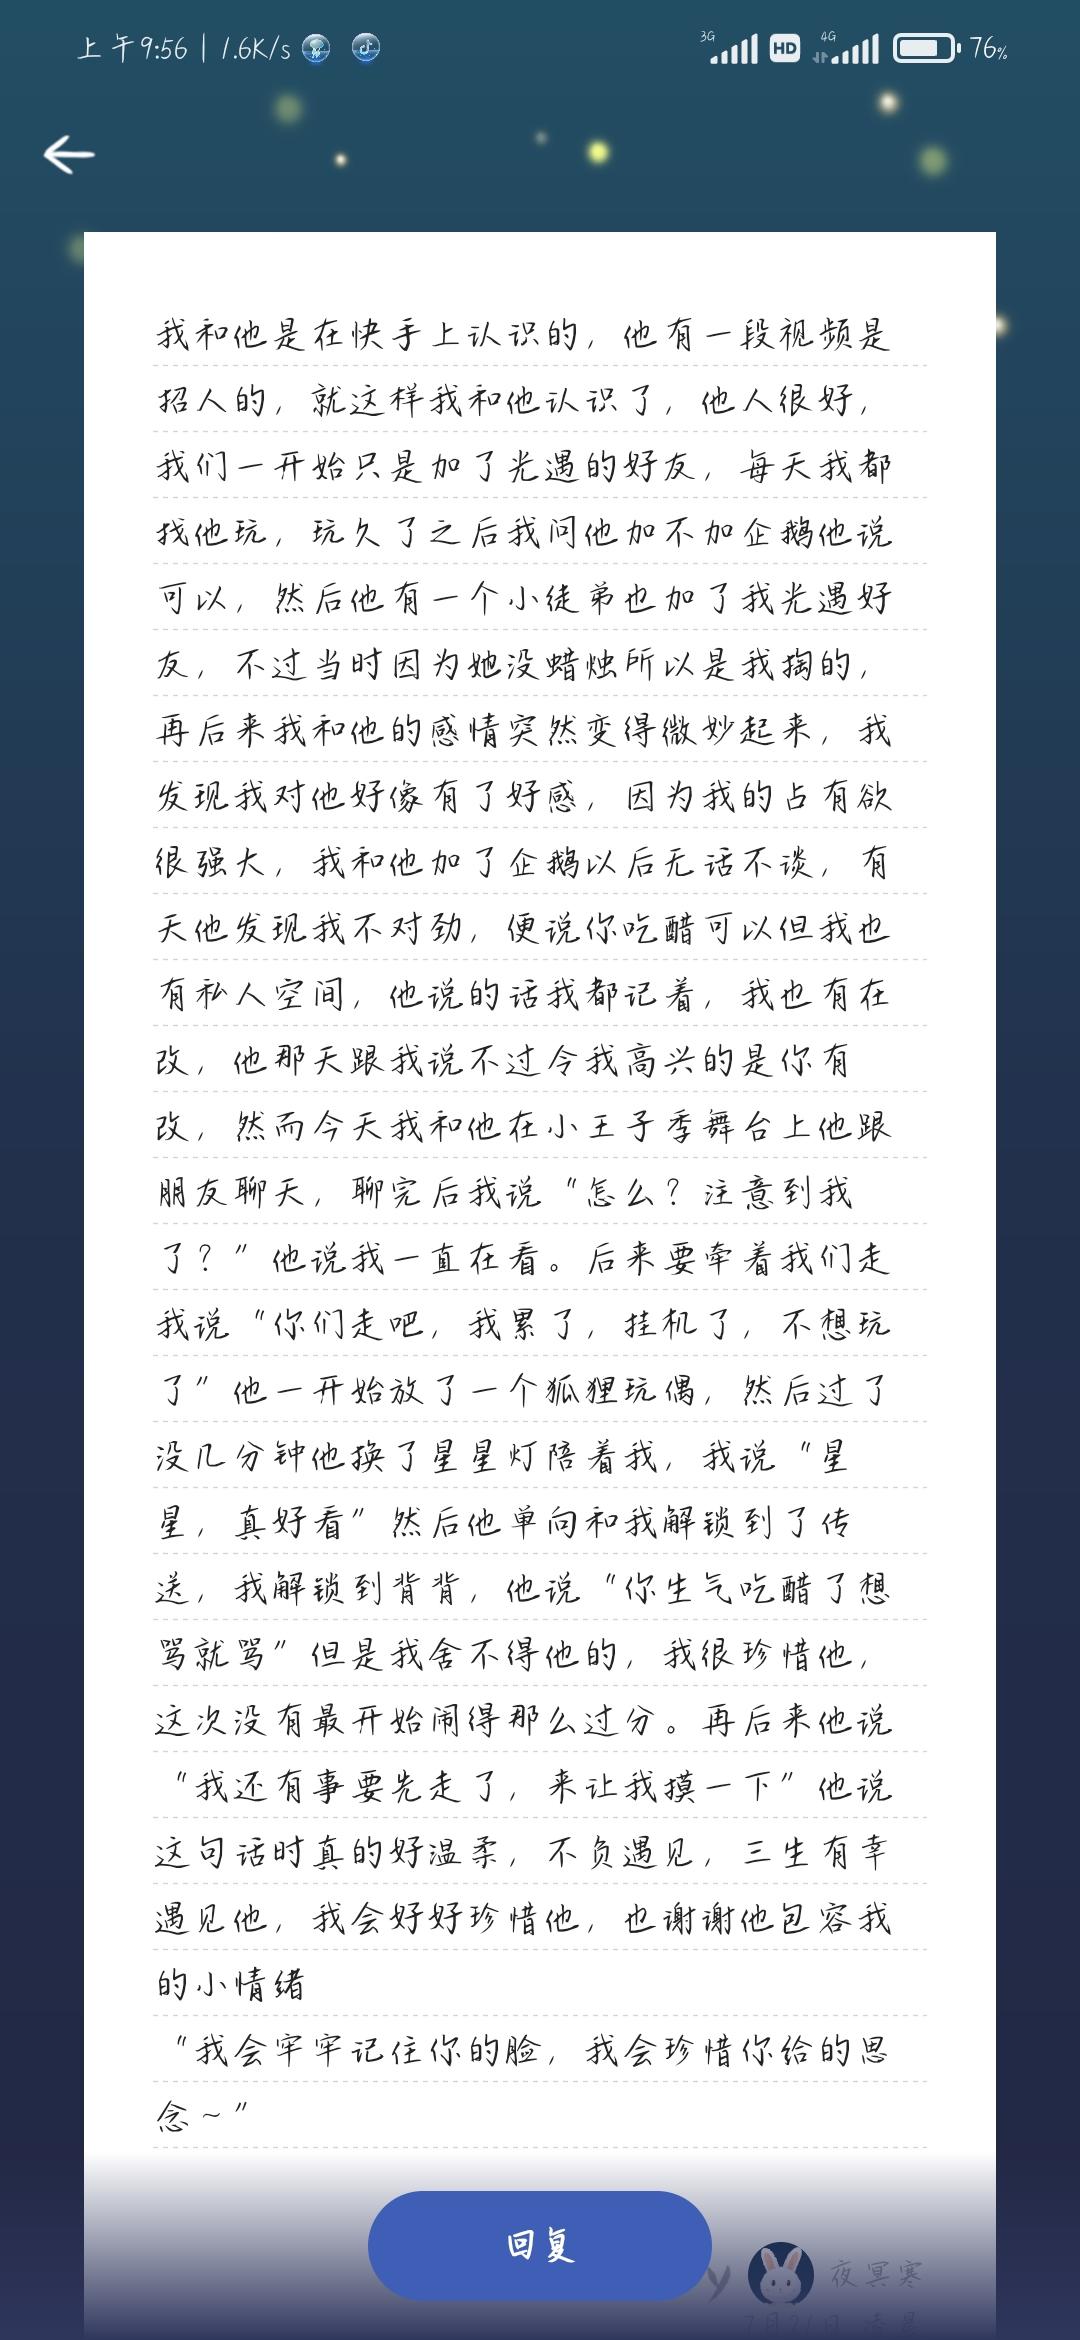 上午9:56 | 1.6K/s
3G HD 4G 76%
我和他是在快手上认识的，他有一段视频是
招人的，就这样我和他认识了，他人很好，
我们一开始只是加了光遇的好友，每天我都
找他玩，玩久了之后我问他加不加企鹅他说
可以，然后他有一个小徒弟也加了我光遇好
友，不过当时因为她没蜡烛所以是我掏的，
再后来我和他的感情突然变得微妙起来，我
发现我对他好像有了好感，因为我的占有欲
很强大，我和他加了企鹅以后无话不谈，有
天他发现我不对劲，便说你吃醋可以但我也
有私人空间，他说的话我都记着，我也有在
改，他那天跟我说不过令我高兴的是你有
改，然而今天我和他在小王子季舞台上他跟
朋友聊天，聊完后我说“怎么？注意到我
了？”他说我一直在看。后来要牵着我们走
我说“你们走吧，我累了，挂机了，不想玩
了”他一开始放了一个狐狸玩偶，然后过了
没几分钟他换了星星灯陪着我，我说“星
星，真好看”然后他单向和我解锁到了传
送，我解锁到背背，他说“你生气吃醋了想
骂就骂”但是我舍不得他的，我很珍惜他，
这次没有最开始闹得那么过分。再后来他说
“我还有事要先走了，来让我摸一下”他说
这句话时真的好温柔，不负遇见，三生有幸
遇见他，我会好好珍惜他，也谢谢他包容我
的小情绪
“我会牢牢记住你的脸，我会珍惜你给的思
念～”
回复
夜冥寒
7月21日 凌晨